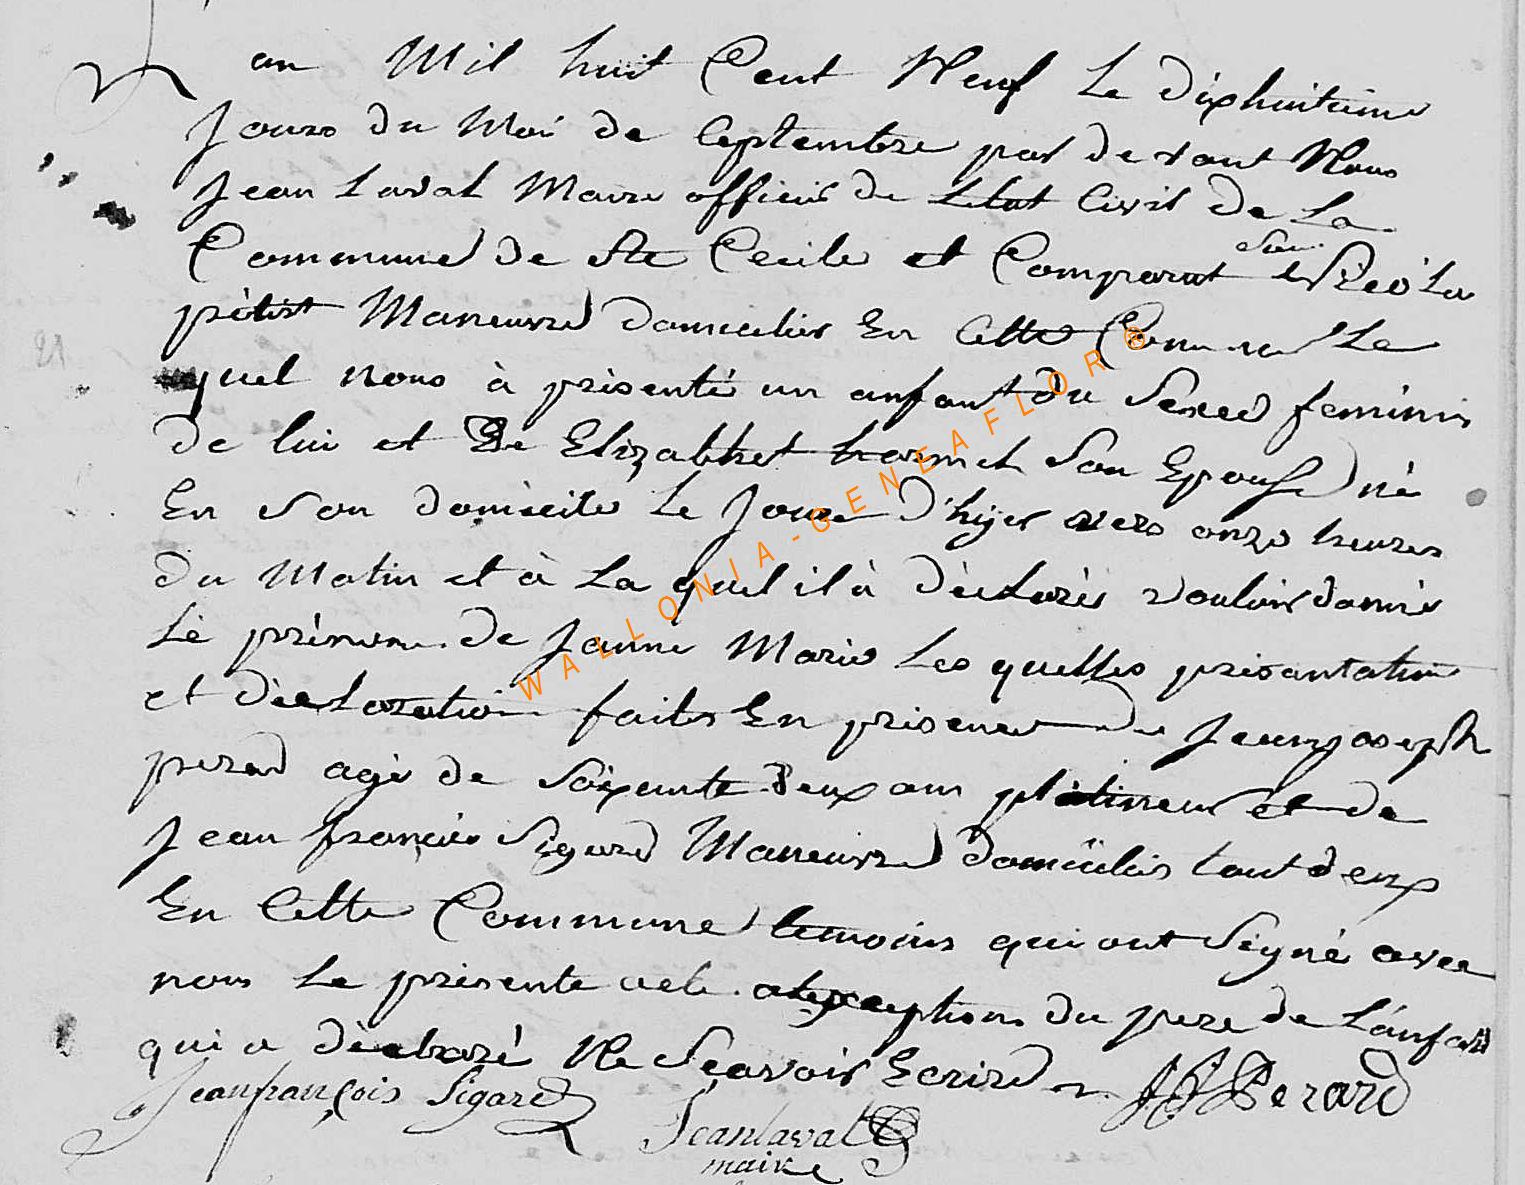 an Mil huit Cent Neuf Le dixhuitieme
Jours du Moi de Ceptembre par devant Nous
Jean Laval Maire officier de Letat Civil de La
Commune de Ste Cecile et Comparut
petist Maneuvre domicilies En Cette Commune Le
quel nous à présenté un enfant du Sexe feminin
de lui et De Elizabhet harmel Son Epouse né
En Son domicile Le Jour d'hyer vers onze heures
du Matin et à La quel il à déclarés Vouloir donné
Lé prénom de Janne Marie Les quelles présantation
et déclaration faites En présence de Jean joseph
perard agé de Soixante deux ans platineur et de
Jean françois Sigard Maneuvre domicilies tout deux
En Cette Commune temoins qui ont Signé avec
nous Le présente acte a Lexception du pere de L'enfant
qui a déclaré Ne Scavoir Ecrire
Jean françois Sigard J J Perard
Jean laval
maire
WALLONIA-GENEAFLOR®